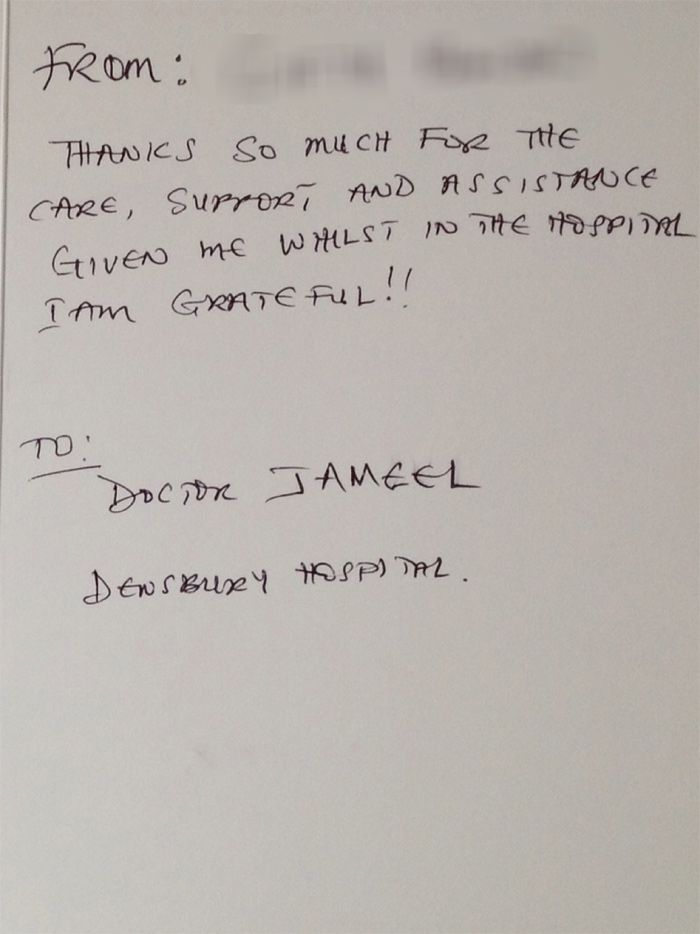 FROM:
THANKS SO MUCH FOR THE
CARE, SUPPORT AND ASSISTANCE
GIVEN ME WHILST IN THE HOSPITAL
I AM GRATEFUL!!
TO:
DOCTOR JAMEEL
DENSBURY HOSPITAL.